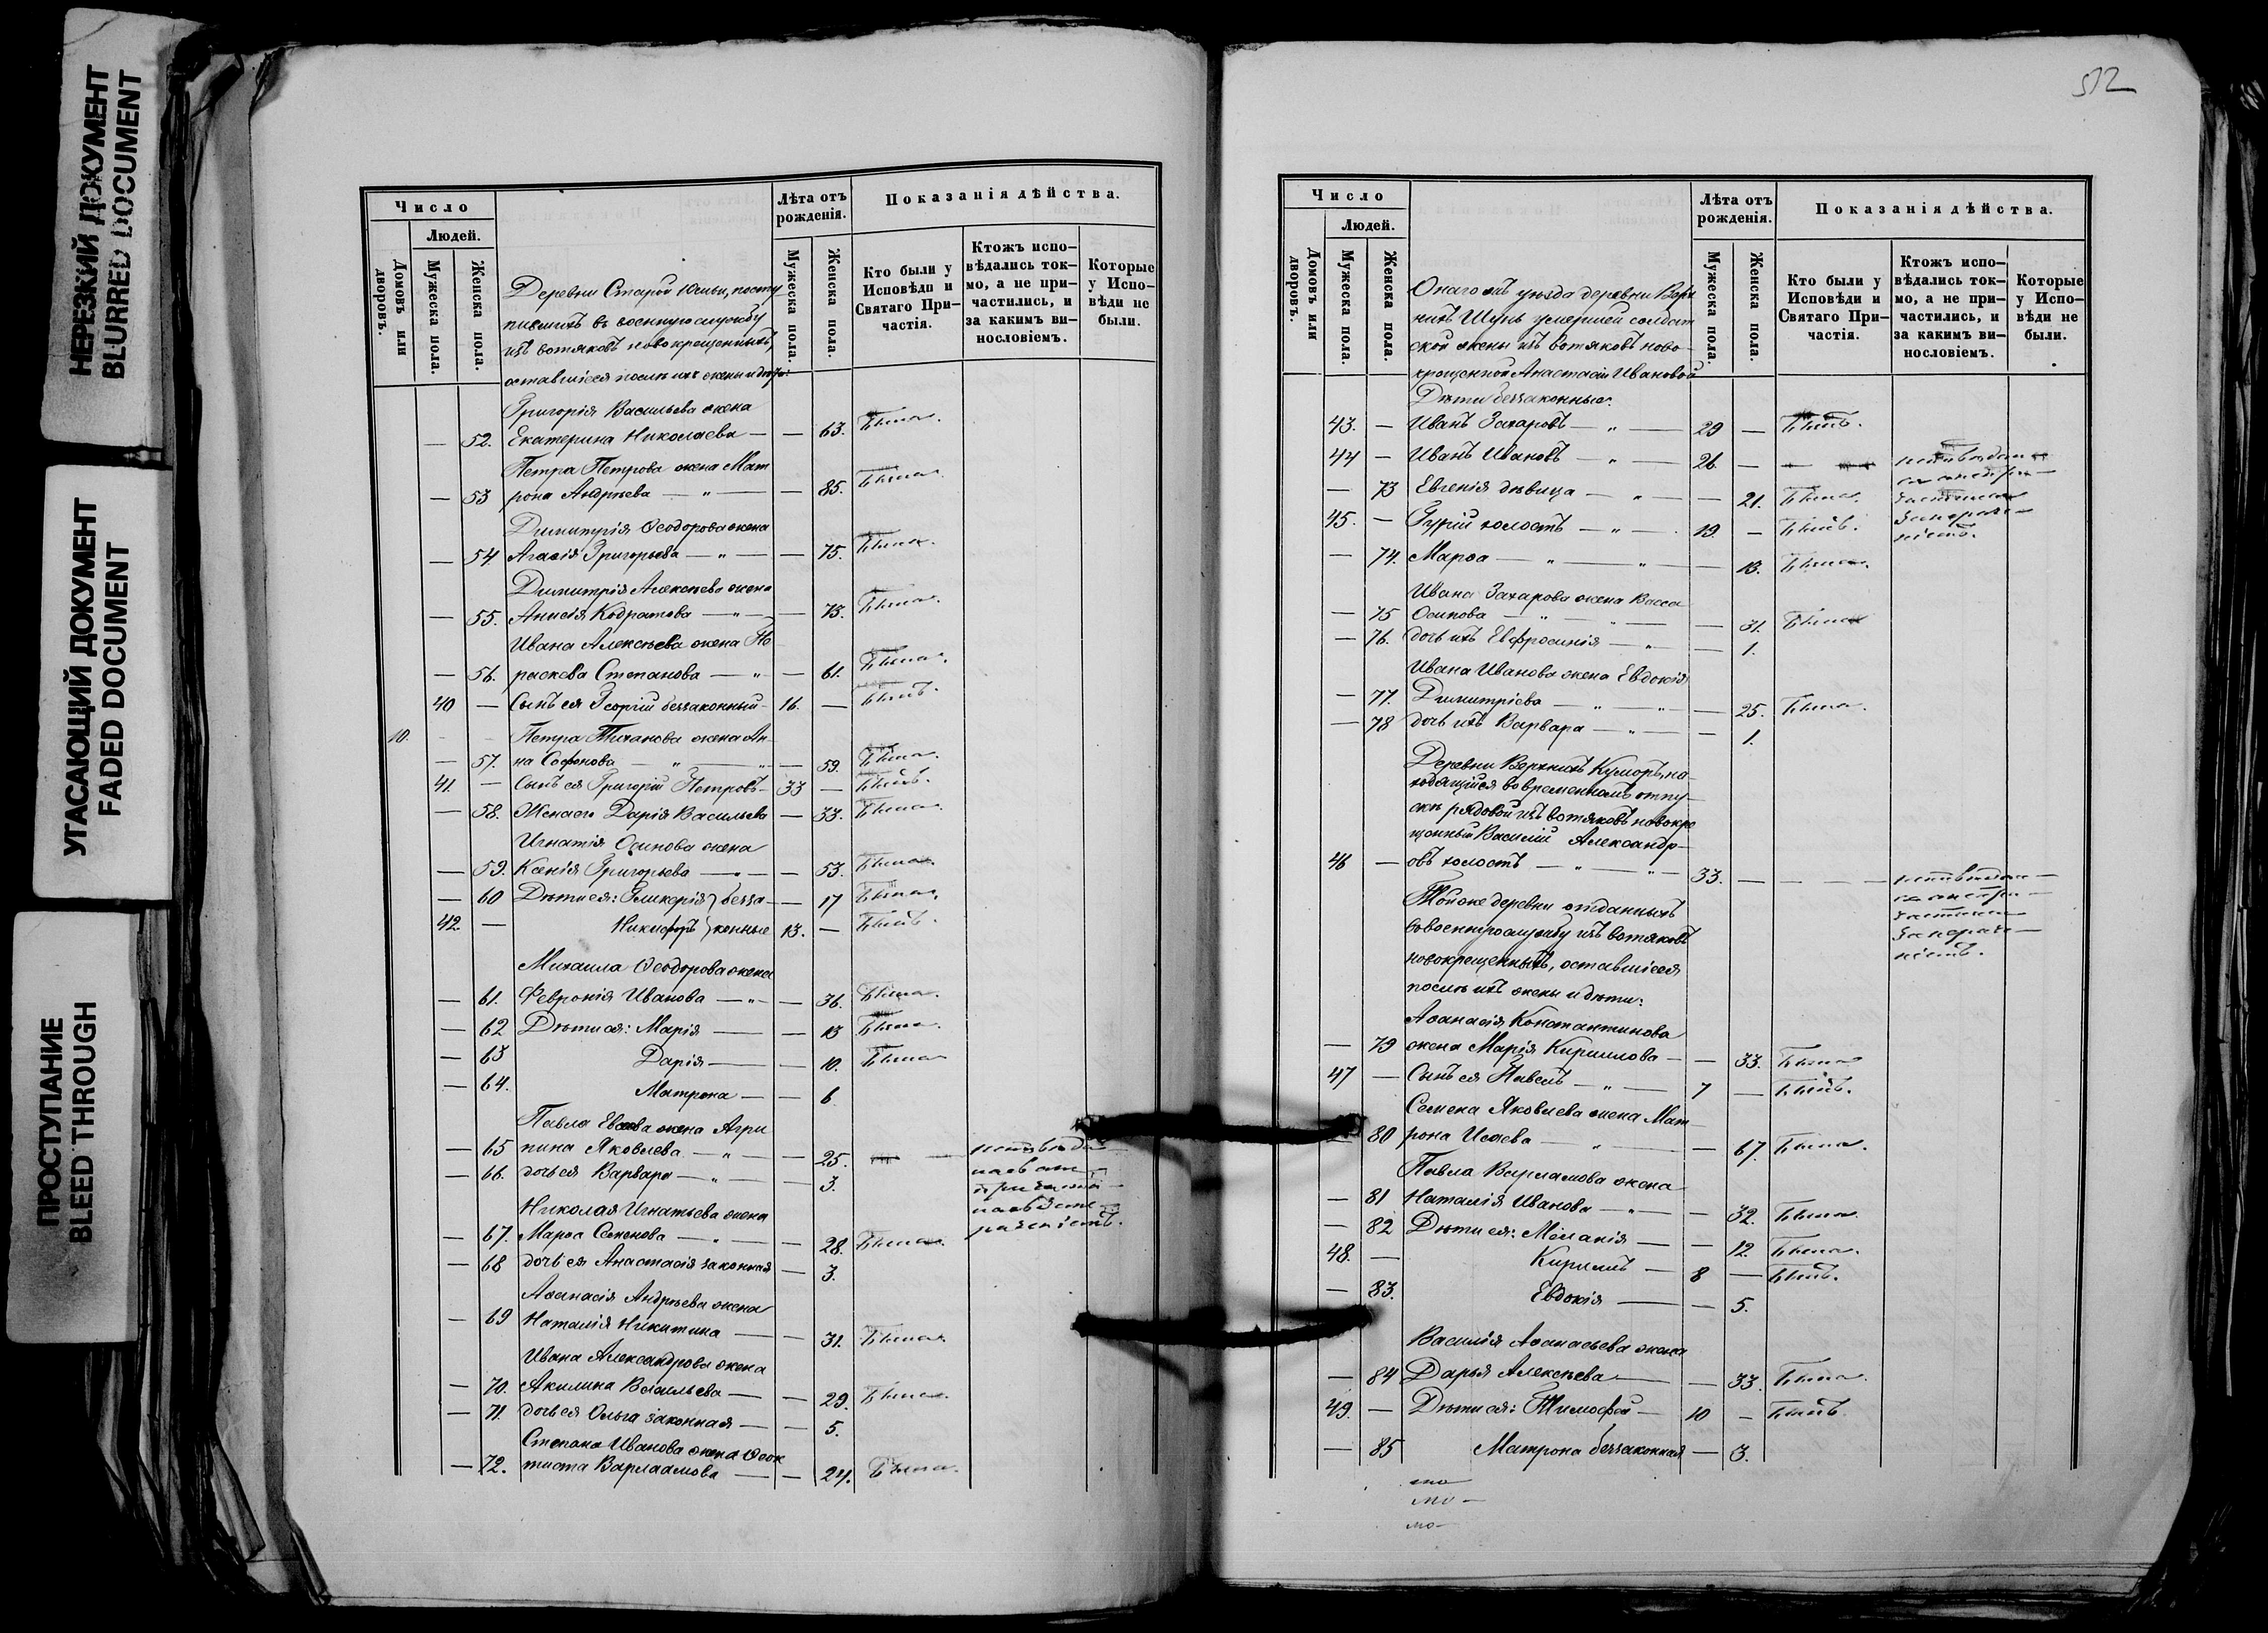 НЕРЕЗКИЙ ДОКУМЕНТ
BLURRED DOCUMENT
УГАСАЮЩИЙ ДОКУМЕНТ
FADED DOCUMENT
ПРОСТУПАНИЕ
BLEED THROUGH
Число
Людей.
Домовъ или дворовъ.
Мужеска пола.
Женска пола.
Лѣта отъ рожденія.
Мужеска пола.
Женска пола.
Показанія дѣйства.
Кто были у Исповѣди и Святаго Причастія.
Ктожъ исповѣдались токмо, а не причастились, и за какимъ винословіемъ.
Которые у Исповѣди не были.
Деревни Старой Юмьи, посту
пившихъ въ военную службу
изъ вотяковъ новокрещенныхъ,
оставшіеся послѣ ихъ жены и дѣти:
Григорія Васильева жена
— 52. Екатерина Николаева — — 63. Была.
Петра Петрова жена Мат
— 53 рона Андреева — „ — — 85. Была.
Димитрія Ѳеодорова жена
— 54 Агаѳія Григорьева — „ — — 75. Была.
Димитрія Алексѣева жена
— 55. Анисія Кодратова — „ — — 73. Была.
Ивана Алексѣева жена Па
— 56. раскева Степанова — „ — 61. Была.
40 — Сынъ ея Георгій беззаконный — 16. — Былъ.
10. Петра Тиханова жена Ан
— 57. на Софонова — „ — „ — 59. Была.
41 — Сынъ ея Григорій Петровъ — 33 — Былъ.
— 58. Жена его Дарія Васильева — 33. Была.
Игнатія Осипова жена
— 59. Ксенія Григорьева — „ — — 53. Была.
— 60 Дѣти ея: Гликерія } безза — 17 Была.
42. — Никифоръ } конные 13. — Былъ.
Михаила Ѳеодорова жена
— 61. Февронія Иванова — „ — — 36. Была.
— 62 Дѣти ея: Марія — — 13 Была.
— 63 Дарія — — 10. Была
— 64. Матрона — — 6
Павла Евсева жена Агри
— 65 пина Яковлева — „ — — 25. — исповѣда
— 66. дочь ея Варвара — „ — — 3.
Николая Игнатьева жена
— 67. Марѳа Семенова — „ — — 28. Была.
— 68 дочь ея Анастасія законная — 3.
Аѳанасія Андреева жена
— 69 Наталія Никитина — — 31. Была.
Ивана Александрова жена
— 70. Акилина Васильева — — 29. Была.
— 71. дочь ея Ольга законная — — 5.
Степана Иванова жена Ѳеок
— 72. тиста Варлаамова — — 24. Была.
512
Число
Людей.
Домовъ или дворовъ.
Мужеска пола.
Женска пола.
Лѣта отъ рожденія.
Мужеска пола.
Женска пола.
Показанія дѣйства.
Кто были у Исповѣди и Святаго Причастія.
Ктожъ исповѣдались токмо, а не причастились, и за какимъ винословіемъ.
Которые у Исповѣди не были.
Онаго жъ уѣзда деревни Верх
нихъ Шунь умершей солдат
ской жены изъ вотяковъ ново-
крещенной Анастасіи Ивановой
Дѣти беззаконные:
43. — Иванъ Захаровъ — „ — 29 — Былъ.
44 — Иванъ Ивановъ — „ — 26 — —
— 73 Евгенія дѣвица — „ — — 21. Была.
45. — Гурій холостъ — „ — 19 — Былъ.
— 74. Марѳа — „ — „ — — 13. Была.
Ивана Захарова жена Васса
— 75 Осипова — „ — „ — — 31. Была
— 76. дочь ихъ Евфросинія — „ — 1.
Ивана Иванова жена Евдокія
— 77. Димитріева — „ — „ — 25. Была.
— 78 дочь ихъ Варвара — „ — — 1.
Деревни Верхнихъ Куморъ, на-
ходящійся во временномъ отпу-
скѣ рядовой изъ вотяковъ новокре
щенный Василій Александр-
46 — овъ холостъ — „ — „ — 33. — — —
Той же деревни отданныхъ
въ военную службу изъ вотяковъ
новокрещенныхъ, оставшіеся
послѣ ихъ жены и дѣти:
Аѳанасія Константинова
— 79 жена Марія Кириллова — — 33. Была
47 — Сынъ ея Павелъ — „ — 7 — Былъ.
Семена Яковлева жена Мат-
— 80 рона Исаева — „ — — 67. Была.
Павла Варламова жена
— 81 Наталія Иванова — „ — — 32. Была.
— 82 Дѣти ея: Меланія — — 12. Была.
48. — Кириллъ — 8 — Былъ.
— 83. Евдокія — — 5.
Василія Аѳанасьева жена
— 84 Дарья Алексѣева — — 33. Была.
49. — Дѣти ея: Тимофей — 10 — Былъ.
— 85 Матрона беззаконная — 3.